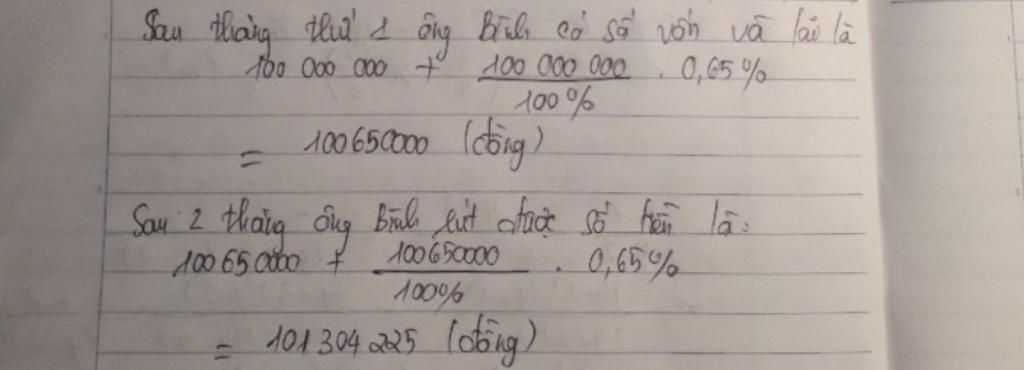 Sau tháng thứ 1 ông Bình có số vốn và lãi là
100 000 000 + 100 000 000 / 100% . 0,65%
= 100650000 (đồng)
Sau 2 tháng ông Bình rút được số tiền là:
100650000 + 100650000 / 100% . 0,65%
= 101304225 (đồng)